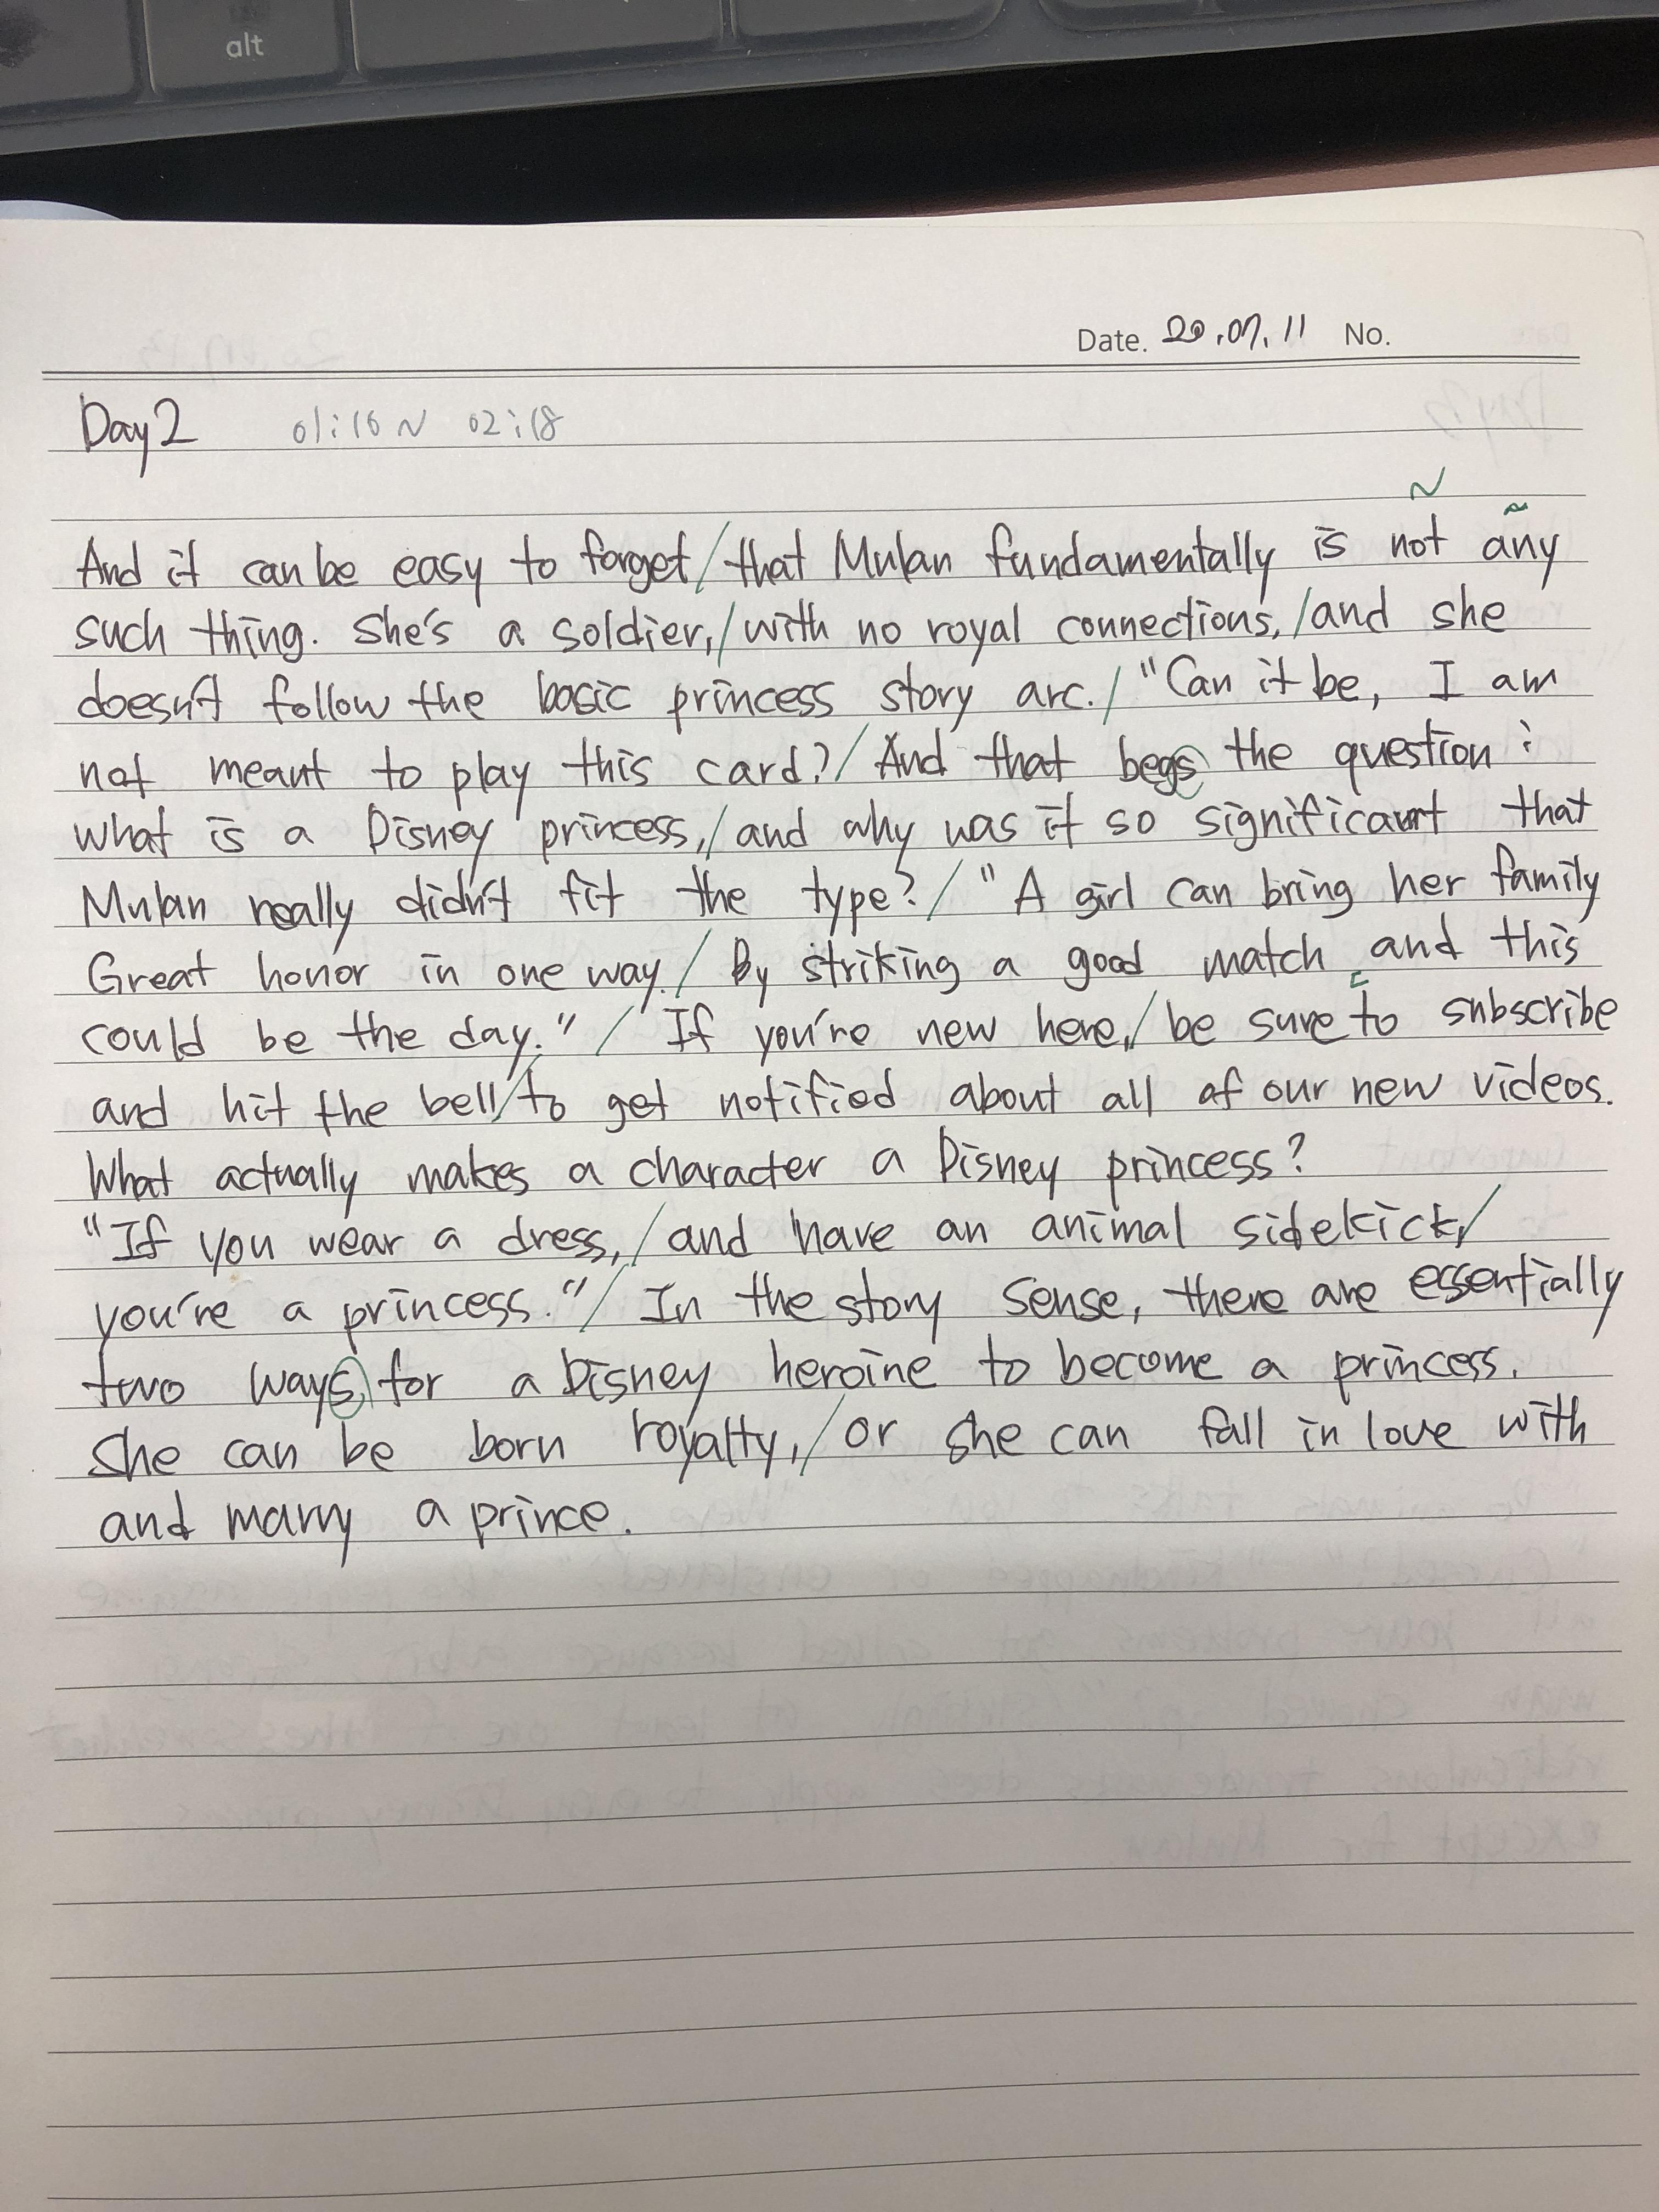 alt
Date. 20.07.11 No.
Day 2 01:16 ~ 02:18
And it can be easy to forget / that Mulan fundamentally is not any
such thing. She's a soldier, / with no royal connections, / and she
doesn't follow the basic princess story arc. / "Can it be, I am
not meant to play this card? / And that begs the question :
what is a Disney princess, / and why was it so significant that
Mulan really didn't fit the type? / "A girl can bring her family
Great honor in one way. / By striking a good match and this
could be the day." / If you're new here, / be sure to subscribe
and hit the bell / to get notified about all of our new videos.
What actually makes a character a Disney princess?
"If you wear a dress, / and have an animal sidekick, /
you're a princess." / In the story sense, there are essentially
two ways for a Disney heroine to become a princess.
She can be born royalty, / or she can fall in love with
and marry a prince.